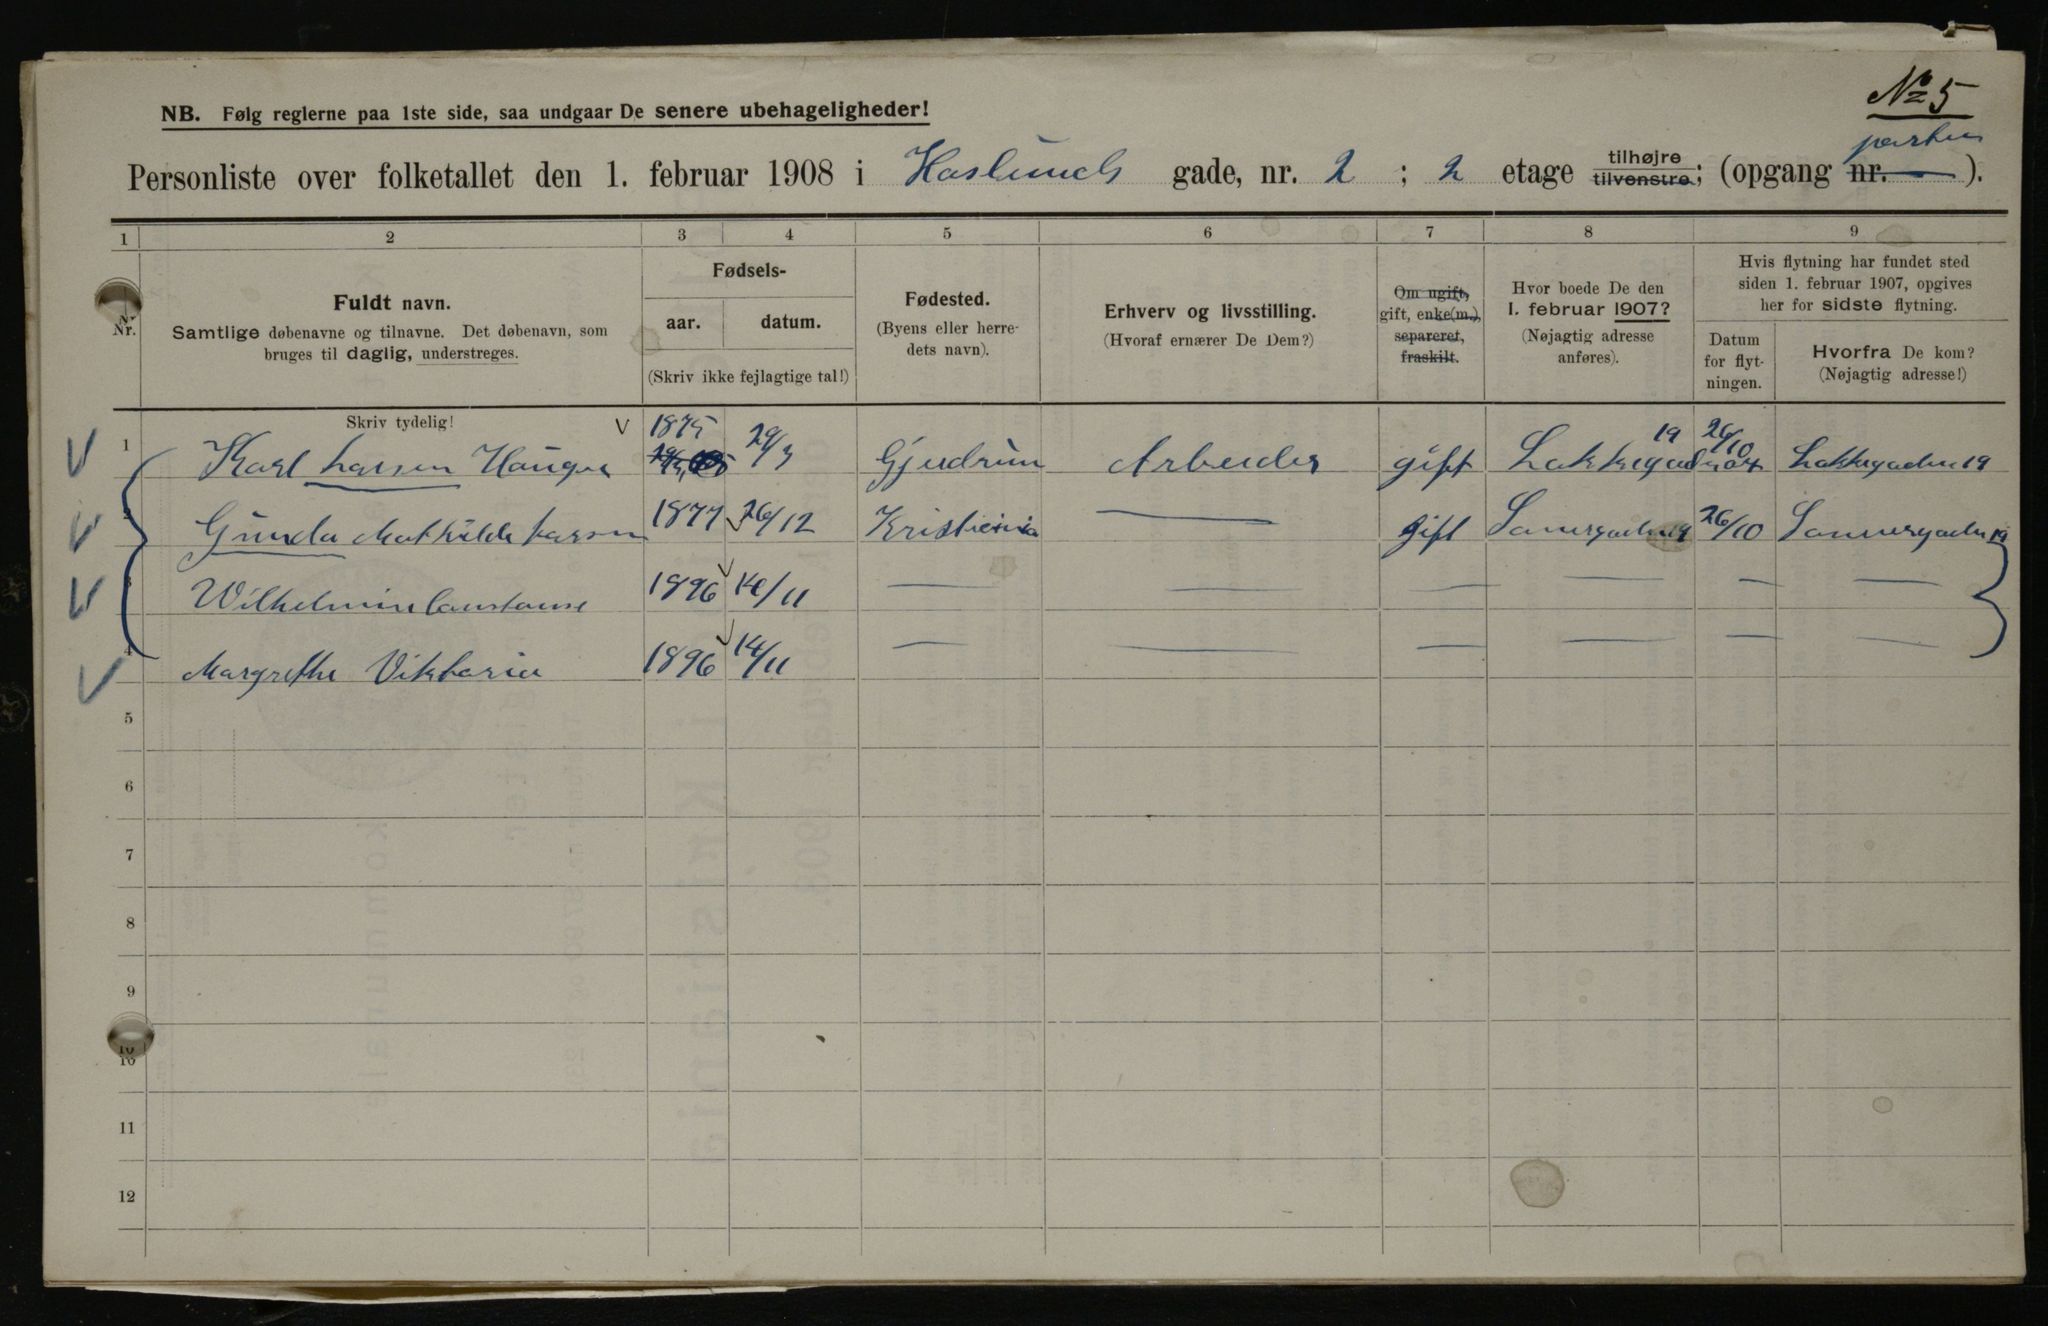 No 5
NB. Følg reglerne paa 1ste side, saa undgaar De senere ubehageligheder!
Personliste over folketallet den 1. februar 1908 i Haslunds gade, nr. 2 ; 2 etage tilhøjre tilvenstre; (opgang nr. — ).
1 2 3 4 5 6 7 8 9
Nr.
Fuldt navn.
Samtlige døbenavne og tilnavne. Det døbenavn, som
bruges til daglig, understreges.
Skriv tydelig!
Fødsels-
aar. datum.
(Skriv ikke fejlagtige tal!)
Fødested.
(Byens eller herre-
dets navn).
Erhverv og livsstilling.
(Hvoraf ernærer De Dem?)
Om ugift,
gift, enke(m.),
separeret,
fraskilt.
Hvor boede De den
1. februar 1907?
(Nøjagtig adresse
anføres).
Hvis flytning har fundet sted
siden 1. februar 1907, opgives
her for sidste flytning.
Datum
for flyt-
ningen.
Hvorfra De kom?
(Nøjagtig adresse!)
1 Karl Larsen Haugen 1875 29/3 Gjerdrum Arbeider gift Lakkegad 19 26/10 Lakkegaden 19
2 Gunda Mathilde Larsen 1877 26/12 Kristiania — gift Sannergaden 19 26/10 Sannergaden 19
3 Wilhelmine Constanse 1896 14/11 — — — — — —
4 Margrethe Viktoria 1896 14/11 — — — — — —
5
6
7
8
9
10
10
11
12